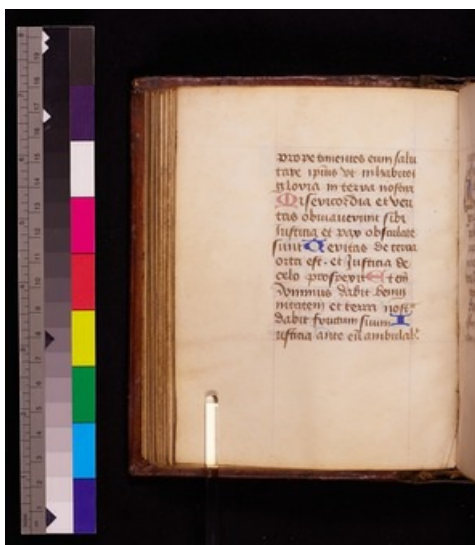 prope timentes eum salu
tare ipius vt inhabitet
gloria in terra nostra
Misericordia et veri
tas obviauerunt sibi
iusticia et pax osculate
sunt Veritas de terra
orta est . et Justicia de
celo prospexit Eteni
dominus dabit benig
nitatem et terra nost
dabit fructum suum I
usticia ante eu ambulab